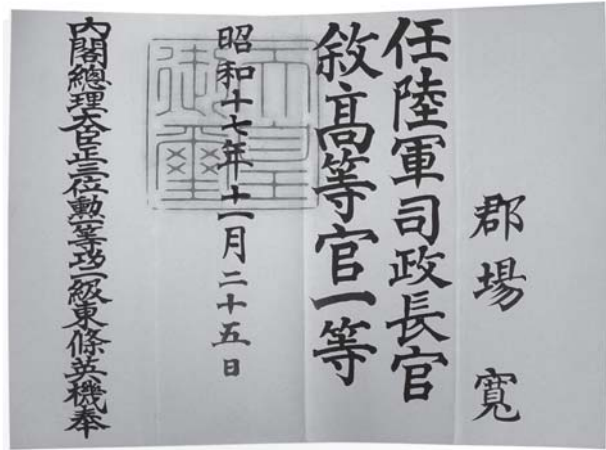 郡場 寬
任陸軍司政長官
敘高等官一等
昭和十七年十一月二十五日
天皇
御璽
內閣總理大臣正三位勳一等功二級東條英機奉